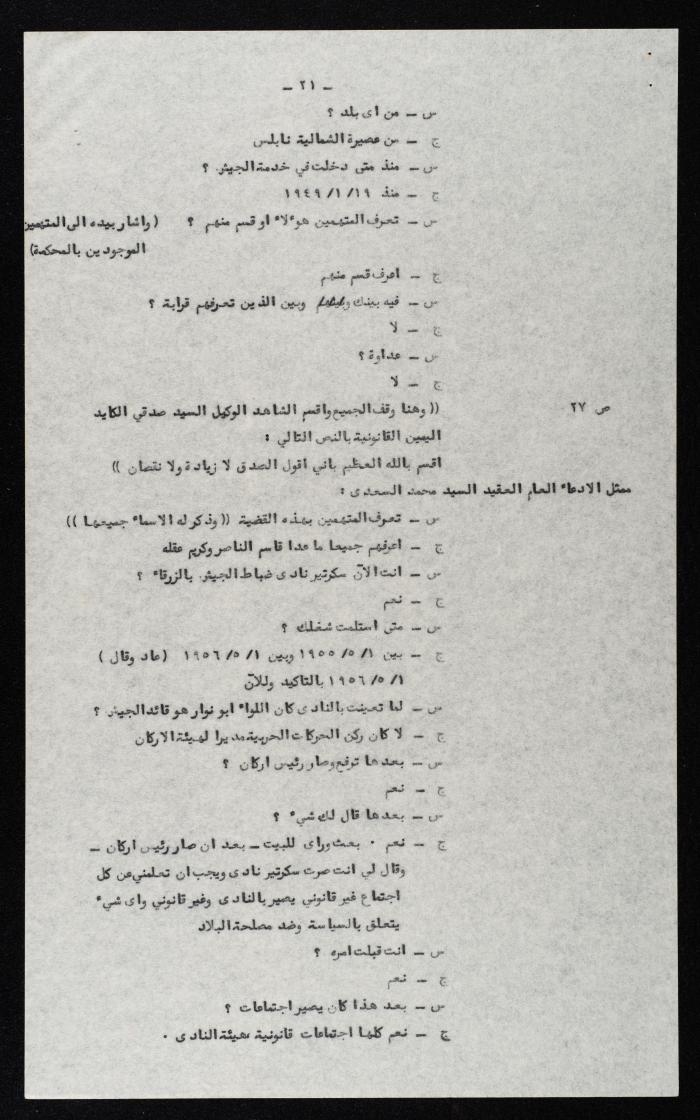 - ٢١ -
س - من اى بلد ؟
ج - من عصيرة الشمالية نابلس
س - منذ متى دخلت في خدمة الجيش ؟
ج - منذ ١٩٤٩/١/١٩
س - تعرف المتهمين هو٠لا٠ او قسم منهم ؟ ( واشار بيده الى المتهمين
الموجودين بالمحكمة)
ج - اعرف قسم منهم
س - فيه بينك وبين الذين تعرفهم قرابة ؟
ج - لا
س - عداوة ؟
ج - لا
ص ٢٧ (( وهنا وقف الجميع واقسم الشاهد الوكيل السيد صدقي الكايد
اليمين القانونية بالنص التالي :
اقسم بالله العظيم باني اقول الصدق لا زيادة ولا نقصان ))
ممثل الادعا٠ العام العقيد السيد محمد السعدى :
س - تعرف المتهمين بهذه القضية (( وذكر له الاسما٠ جميعها ))
ج - اعرفهم جميعا ما عدا قاسم الناصر وكريم عقله
س - انت الآن سكرتير نادى ضباط الجيش بالزرقا٠ ؟
ج - نعم
س - متى استلمت شغلك ؟
ج - بين ١/ ٥/ ١٩٥٥ وبين ١/ ٥/ ١٩٥٦ (عاد وقال )
١/ ٥/ ١٩٥٦ بالتاكيد وللآن
س - لما تعينت بالنادى كان اللوا٠ ابو نوار هو قائد الجيش ؟
ج - لا كان ركن الحركات الحربية مديرا لهيئة الاركان
س - بعدها ترفع وصار رئيس اركان ؟
ج - نعم
س - بعدها قال لك شي٠ ؟
ج - نعم ٠ بعث وراى للبيت - بعد ان صار رئيس اركان -
وقال لي انت صرت سكرتير نادى ويجب ان تعلمني عن كل
اجتماع غير قانوني يصير بالنادى وغير قانوني واى شي٠
يتعلق بالسياسة وضد مصلحة البلاد
س - انت قبلت امره ؟
ج - نعم
س - بعد هذا كان يصير اجتماعات ؟
ج - نعم كلها اجتماعات قانونية هيئة النادى ٠